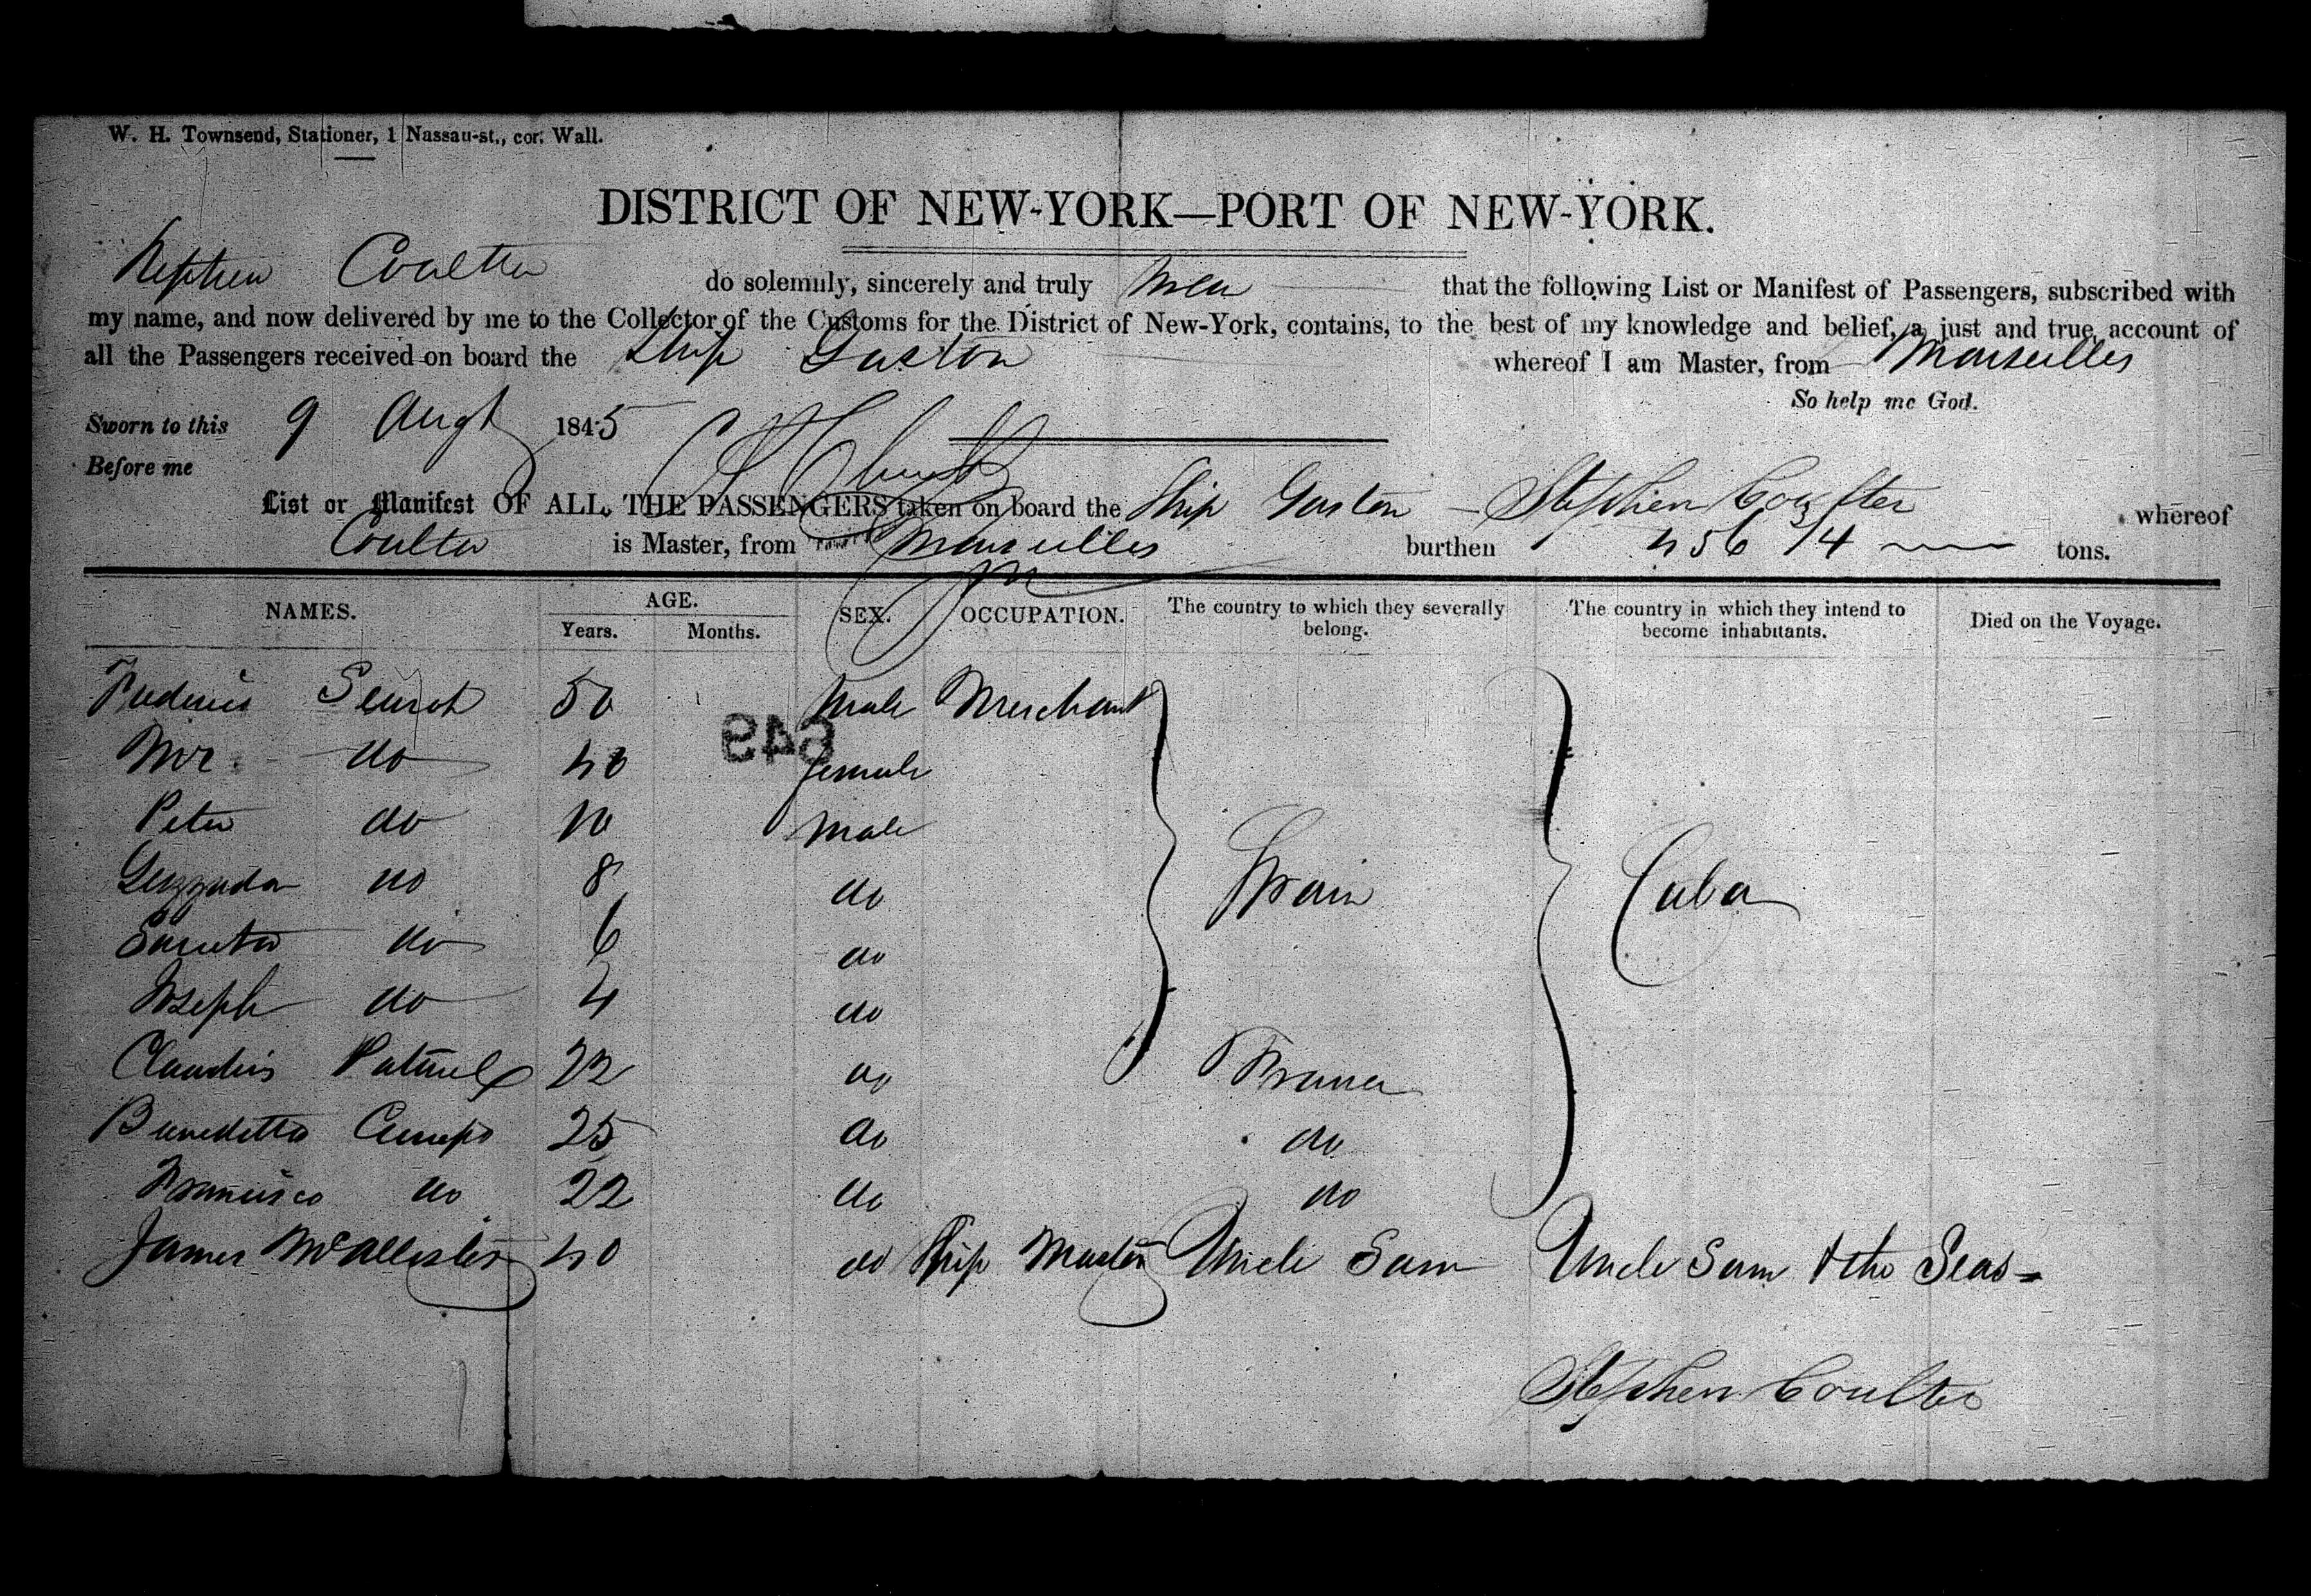 W. H. Townsend, Stationer, 1 Nassau-st., cor. Wall.
DISTRICT OF NEW-YORK—PORT OF NEW-YORK.
Stephen Coulter do solemnly, sincerely and truly that the following List or Manifest of Passengers, subscribed with
my name, and now delivered by me to the Collector of the Customs for the District of New-York, contains, to the best of my knowledge and belief, a just and true account of
all the Passengers received on board the Ship Gaston whereof I am Master, from Marseilles
So help me God.
Sworn to this 9 Augt 1845
Before me
List or Manifest OF ALL THE PASSENGERS taken on board the Ship Gaston — Stephen Coulter whereof
Coulter is Master, from Marseilles burthen 456 3/4 tons.
NAMES. AGE. SEX. OCCUPATION. The country to which they severally belong. The country in which they intend to become inhabitants. Died on the Voyage.
Years. Months.
50 Male Merchant
649
do 40 female
Peter do 10 male
do 8 do Spain Cuba
do 6 do
Joseph do 4 do
22 do France
25 do do
Francisco do 22 do do
James McAllister 40 do Ship Master Uncle Sam Uncle Sam & the Seas
Stephen Coulter